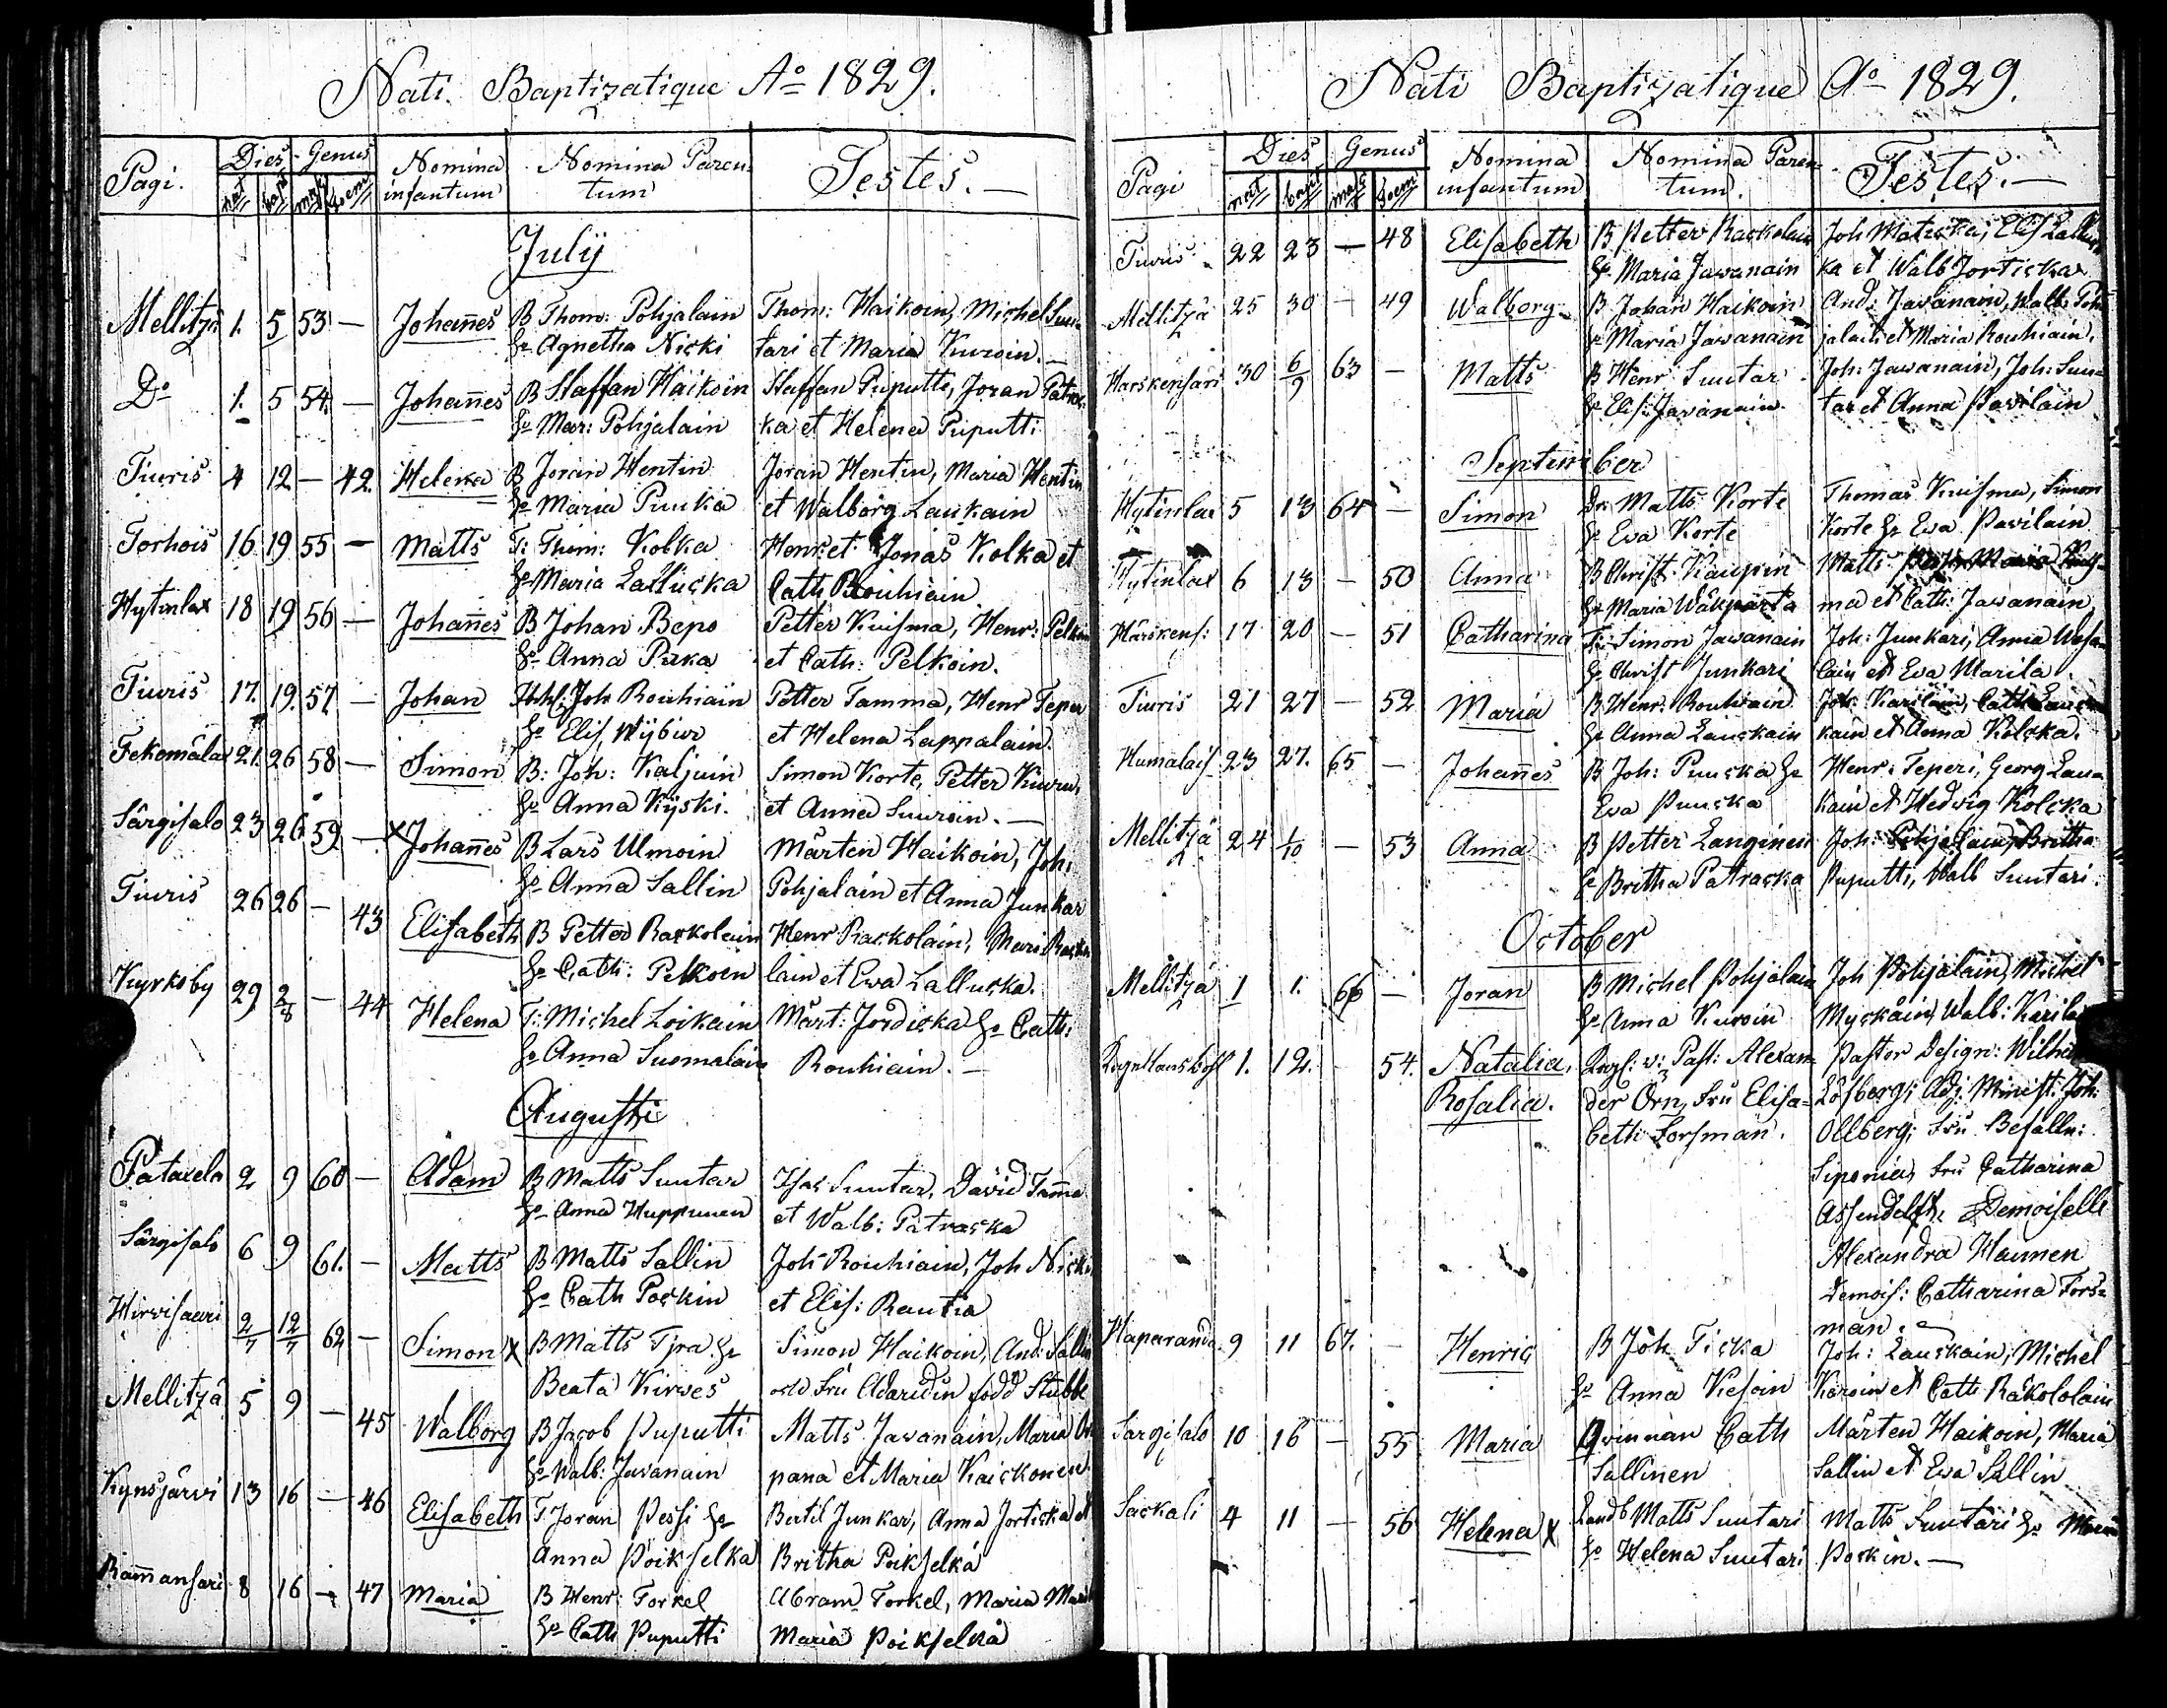 Nati Baptizatique Aº 1829.
Pagi. Dies Genus Nomina Nomina Paren- Testes.
nat bapt masc foem infantum tum
July
Mellitzä 1. 5 53 — Johannes B Thom: Pohjalain Thom: Haikoin, Michel Sun-
hu Agnetha Nicki tari et Maria Kuroin. —
Do 1. 5 54. — Johannes B Staffan Haikoin Staffan Puputti, Joran Patrac-
hu Mar: Pohjalain ka et Helena Puputti
Tiuris 4 12 — 42. Helena B Joran Hentin Joran Hentin, Maria Hentin
hu Maria Puuka et Walborg Laukain
Torhois 16 19 55 — Matts T: Thom: Kolka Henr: et Jonas Kolka et
hu Maria Lallucka Cath Rouhiain
Hytinlax 18 19 56 — Johannes B Johan Repo Petter Kuisma, Henr: Pelkoin
hu Anna Pirka et Cath: Pelkoin.
Tiuris 17. 19. 57 — Johan Joh Rouhiain Petter Tamma, Henr Teper
hu Elis, et Helena Lappalain.
Tekomäla 21. 26 58 — Simon B: Joh: Kaljuin Simon Korte, Petter
hu Anna Kyski. et Anna Suuroin. —
Särgisalo 23 26 59 — x Johannes B Lars Ulmoin Mårten Haikoin, Joh.
hu Anna Sallin Pohjalain et Anna Junkar
Tiuris 26 26 — 43 Elisabeth B Petter Rackolain Henr Rackolain, Mari
hu Cath: Pelkoin lain et Ewa Lallucka.
Kyrkoby 29 2/8 — 44 Helena T: Michel Loikain Mårt: Jordicka hu Cath:
hu Anna Suomalain Rouhiain. —
Augusti
Pataxela 2 9 60 — Adam B Matts Suntar Isac Suntar, David Tamma
hu Anna Huppunen et Walb: Patracka
Särgisalo 6 9 61. — Matts B Matts Sallin Joh Rouhiain, Joh Nicki
hu Cath Pockin et Elis: Rautia
Hirvisaari 2/7 12/7 62 — Simon x B Matts Tjra hu Simon Haikoin, And: Sallin
Beata Kirwes och Fru född Stubbe
Mellitzä 5 9 — 45 Walborg B Jacob Puputti Matts Jawanain, Maria
hu Walb: Jawanain pana et Maria Kaickonen
Kynsjärvi 13 16 — 46 Elisabeth T Joran Pessi hu Bertil Junkar, Anna Jorticka et
Anna Poikselka Britha Poikselkä
Rammansari 8 16 — 47 Maria B Henr: Torkel Abram Torkel, Maria
hu Cath Puputti Maria Poikselkä
Nati Baptizatique Aº 1829.
Pagi Dies Genus Nomina Nomina Paren- Testes. —
nat bapt masc foem infantum tum.
Tiuris 22 23 — 48 Elisabeth B Petter Rackolain Joh Maticka, Elis Lalluc-
hu Maria Jawanain ka et Walb Jorticka
Mellitzä 25 30 — 49 Walborg B Johan Haikoin And: Jawanain, Walb: Poh-
hu Maria Jawanain jalain et Maria Rouhiain.
Harskensari 30 6/9 63 — Matts B Henr Suntar Joh: Jawanain, Joh: Sun-
hu Elis: Jawanain tar et Anna Pavilain
September
Hytinlax 5 13 64 — Simon Dr: Matts Korte Thomas Kuisma, Simon
hu Eva Korte Korte hu Eva Pavilain
Hytinlax 6 13 — 50 Anna B Christ. Kaupin Matts
hu Maria ma et Cath: Jawanain
Härskens: 17 20 — 51 Catharina T: Simon Jawanain Joh: Junkari, Anna
hu Christ Junkari lain et Eva Marila
Tiuris 21 27 — 52 Maria B Henr: Rouhiain Joh: Karilain, Cath Lauc-
hu Anna Lauckain kain et Anna Kolcka.
Humalais 23 27. 65 — Johannes B Joh: Puucka hu Henr: Teperi, Georg Lau-
Eva Puucka kain et Hedvig Kolcka
Mellitzä 24 1/10 — 53 Anna B Petter Langinen Joh: Pohjalain, Britha
hu Britha Patracka Puputti, Walb Suntari.
October
Mellitzä 1 1. 66 — Joran B Michel Pohjalain Joh Pohjalain, Michel
hu Anna Kuroin Myckäin, Walb: Karila
1. 12. 54. Natalia, v: Past: Alexan- Pastor Design: Wilhelm
Rosalia. der Örn, Fru Elisa- Löfberg; Adj. Minist: Joh:
beth Forsman. Ollberg; Fru Befalln:
Siponia, Fru Catharina
Assendelft, Demoiselle
Alexandra Hannen
Demois: Catharina Fors-
man.
Haparanda 9 11 67. — Henric B Joh Ticka Joh: Lauckain, Michel
hu Anna Kesoin Karoin et Cath Räkololain
Särgisalo 10 16 — 55 Maria Qvinnan Cath Mårten Haikoin, Maria
Sallinen Sallin et Eva Sallin
Sackali 4 11 — 56 Helena x Landb Matts Suntari Matts Suntari hu
hu Helena Suntari Pockin. —